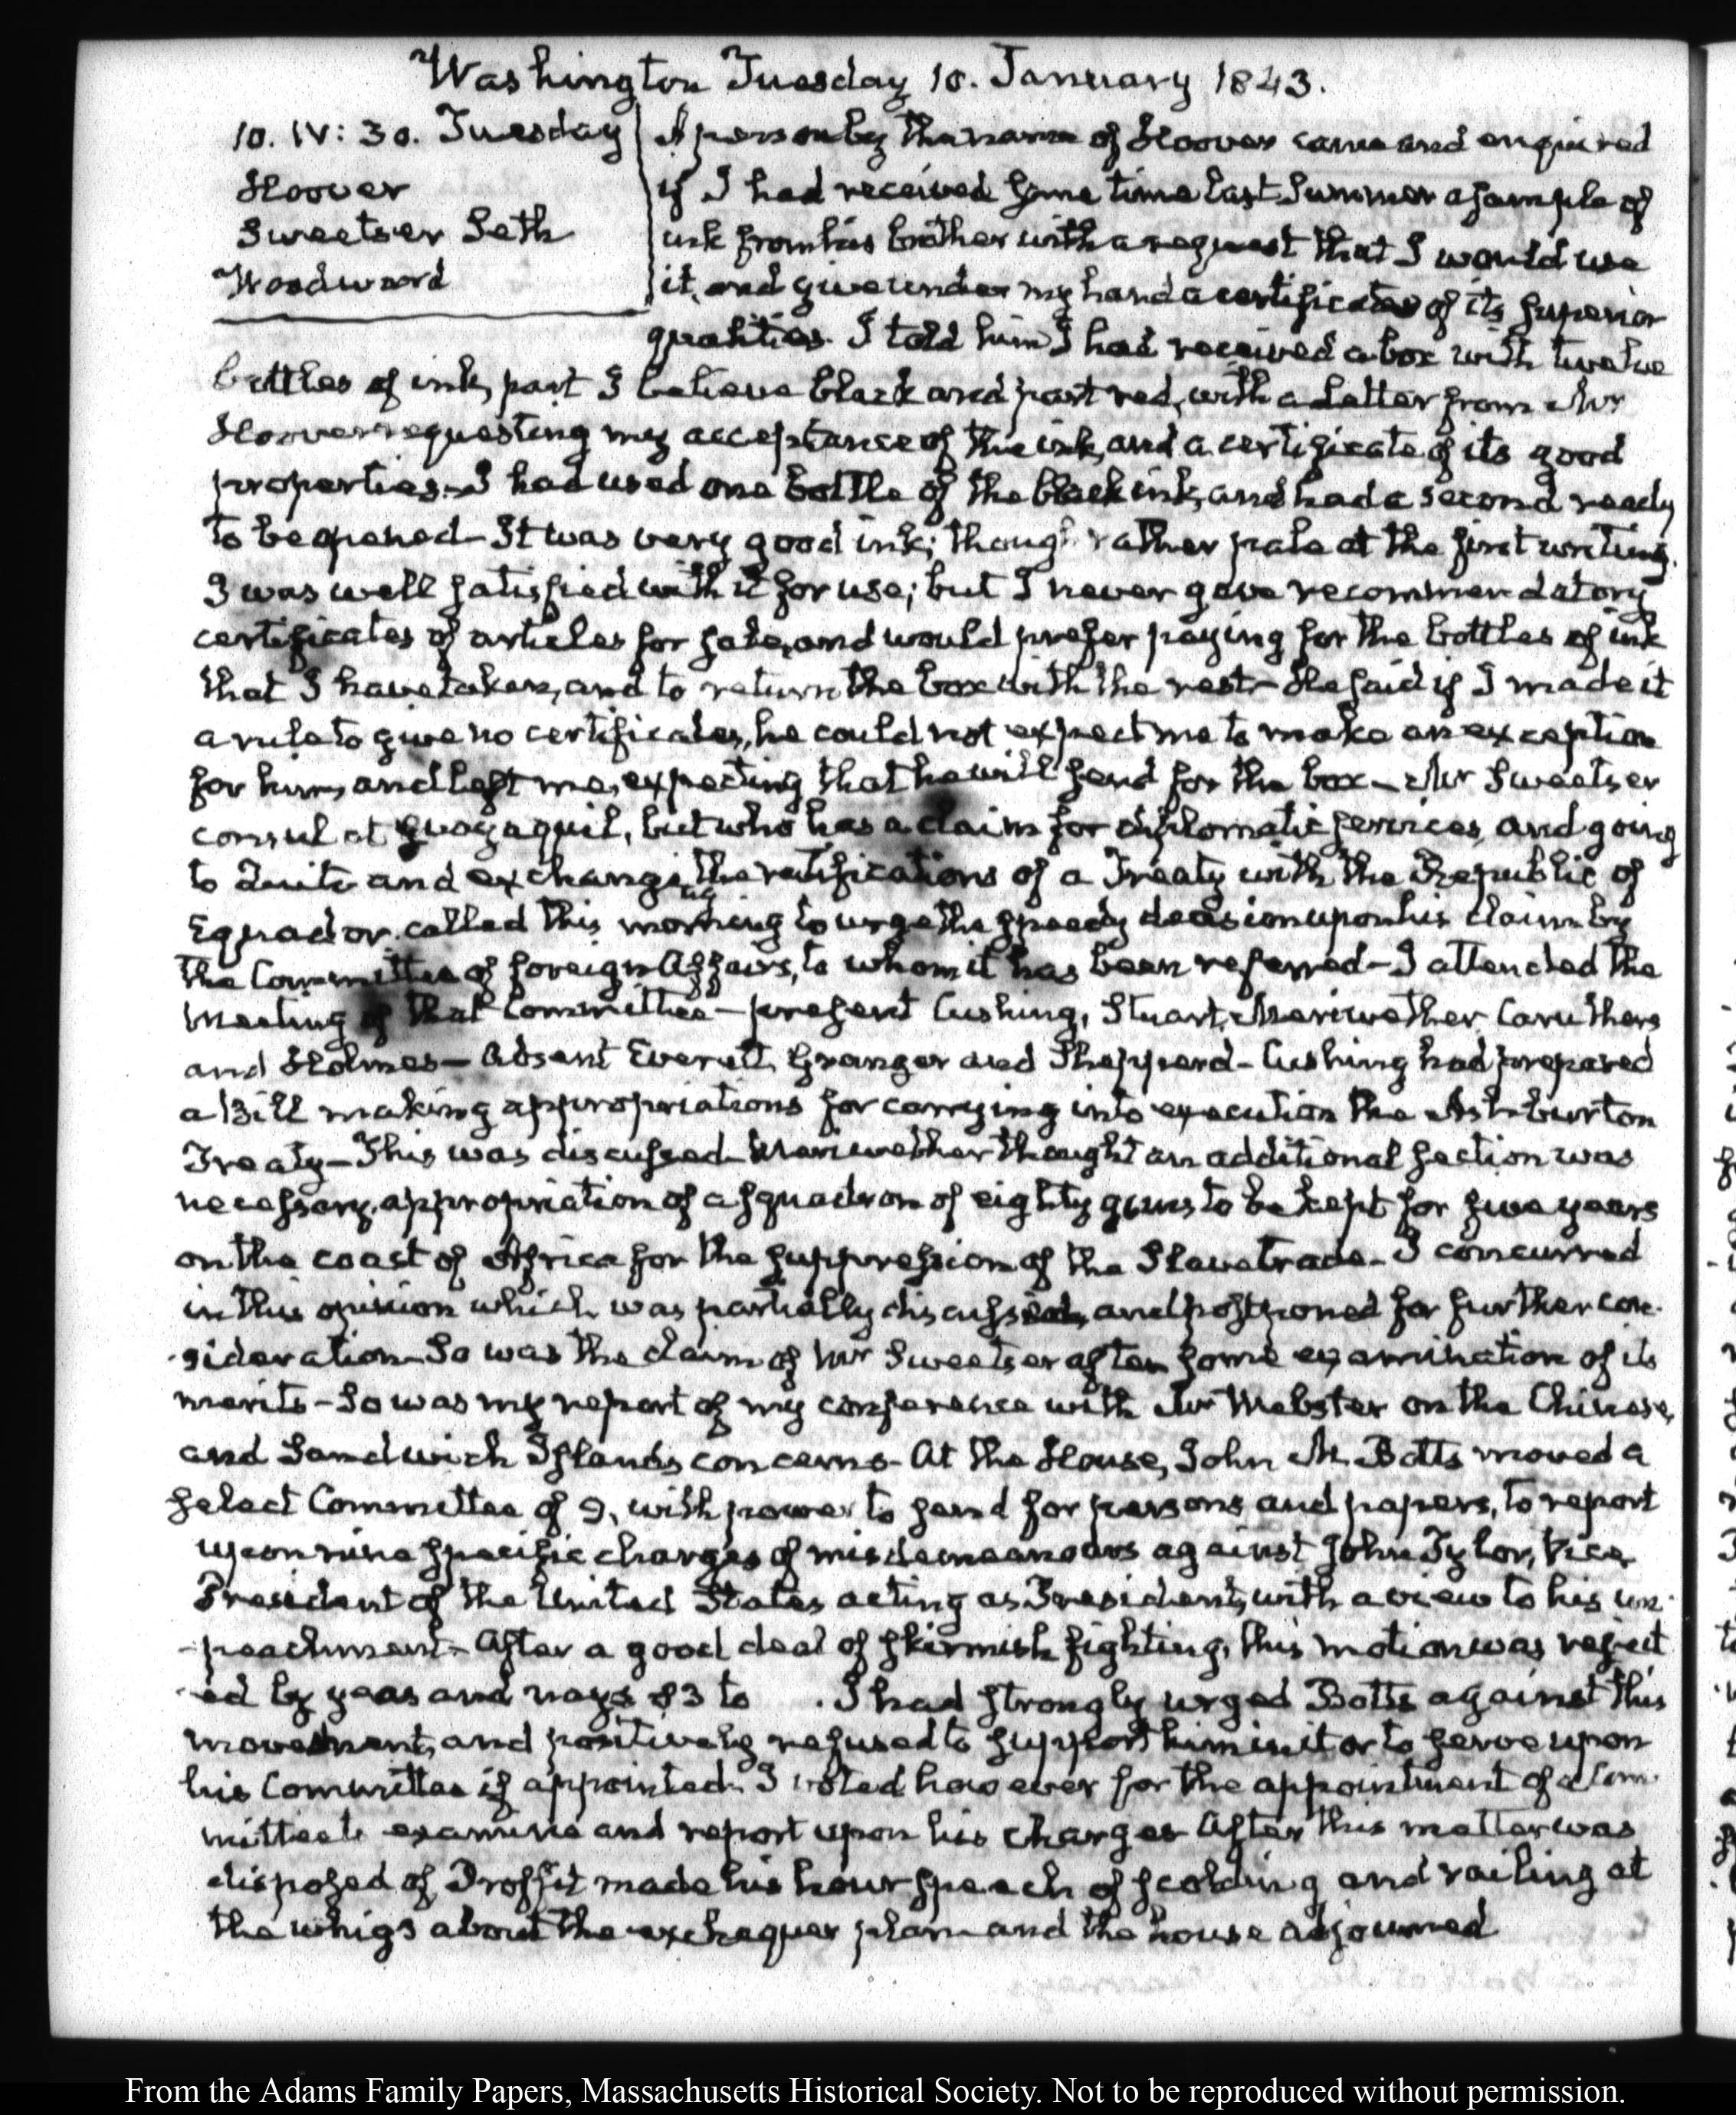 Washington Tuesday 10. January 1843.
10. IV: 30. Tuesday
Hoover
Sweetser Seth
Woodward
A person by the name of Hoover came and enquired
if I had received some time last Summer a sample of
ink from his brother with a request that I would use
it, and give under my hand a certificate of its superior
qualities. I told him I had received a box with twelve
bottles of ink, part I believe black and part red, with a Letter from Mr
Hoover requesting my acceptance of the ink, and a certificate of its good
properties. I had used one bottle of the black ink, and had a second ready
to be opened. It was very good ink; though rather pale at the first writing.
I was well satisfied with it for use; but I never gave recommendatory
certificates of articles for sale, and would prefer paying for the bottles of ink
that I have taken, and to return the box with the rest— He said if I made it
a rule to give no certificates, he could not expect me to make an exception
for him, and left me, expecting that he will send for the box— Mr Sweetser
consul at Guayaquil, but who has a claim for diplomatic services, and going
to Quito and exchanging the ratifications of a Treaty with the Republic of
Equador called this morning to urge the speedy decision upon his claim by
the Committee of foreign Affairs, to whom it has been referred— I attended the
meeting of that Committee— present Cushing, Stuart, Meriwether Caruthers
and Holmes— Absent Everett, Granger and Shepperd— Cushing had prepared
a Bill making appropriations for carrying into execution the Ashburton
Treaty— This was discussed— Meriwether thought an additional section was
necessary, appropriation of a squadron of eighty guns to be kept for five years
on the coast of Africa for the suppression of the Slave trade— I concurred
in this opinion which was partially discussed, and postponed for further con-
-sideration— So was the claim of Mr Sweetser after some examination of its
merits— So was my report of my conference with Mr Webster on the Chinese,
and Sandwich Islands concerns— At the House, John M. Botts moved a
select Committee of 9, with power to send for persons and papers, to report
upon nine specific charges of misdemeanours against John Tyler, Vice
President of the United States acting as President, with a view to his im-
-peachment— After a good deal of skirmish fighting, this motion was reject
-ed by yeas and nays 83 to . I had strongly urged Botts against this
movement, and positively refused to support him in it or to serve upon
his Committee if appointed. I voted however for the appointment of a Com-
mittee to examine and report upon his charges After this matter was
disposed of Proffit made his hour speech of scolding and railing at
the whigs about the exchequer plan and the house adjourned
From the Adams Family Papers, Massachusetts Historical Society. Not to be reproduced without permission.